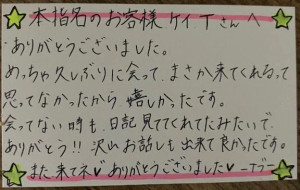 本指名のお客様 ケイ Tさんへ
ありがとうございました。
めっちゃ久しぶりに会って、まさか来てくれるって
思ってなかったから嬉しかったです。
会ってない時も、日記見ててくれてたみたいで、
ありがとう!!沢山お話しも出来て良かったです。
また来てネ♡ありがとうございました♡